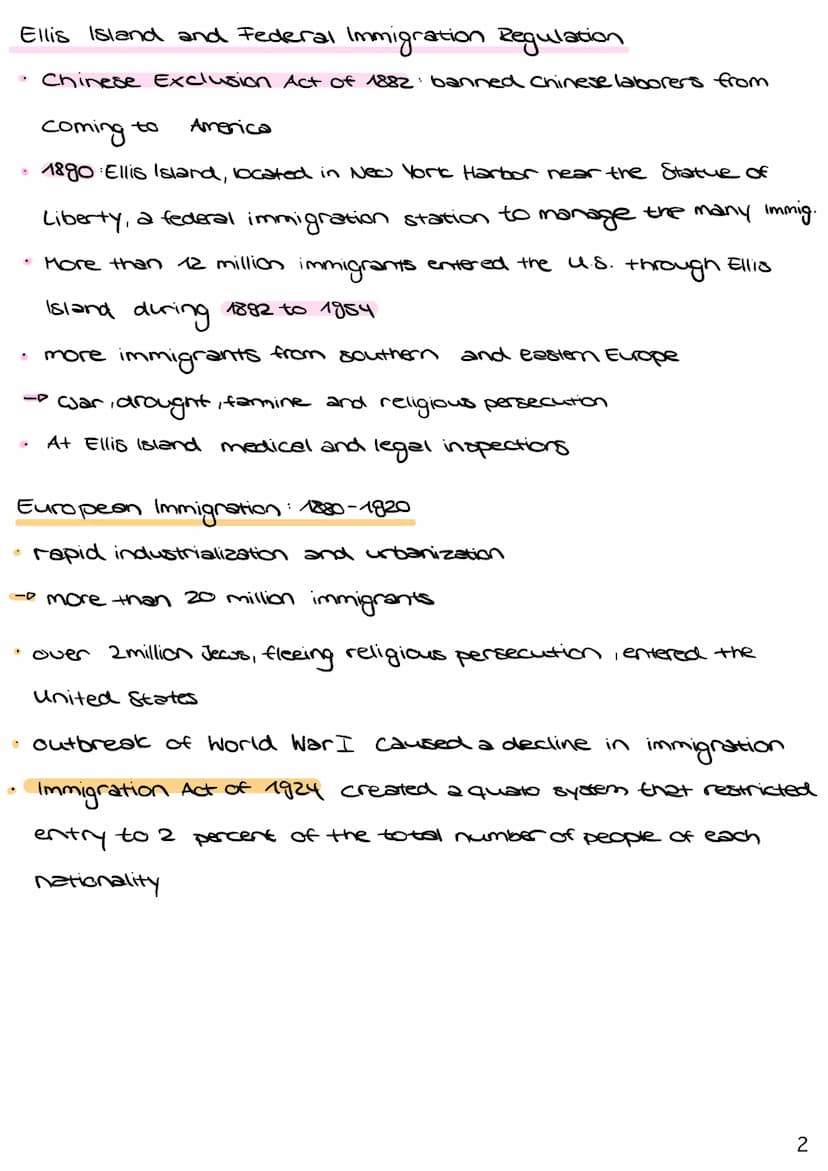 Ellis Island and Federal Immigration Regulation
• Chinese Exclusion Act of 1882: banned Chinese laborers from
coming to America
• 1890: Ellis Island, located in New York Harbor near the Statue of
Liberty, a federal immigration station to manage the many immig.
• More than 12 million immigrants entered the U.S. through Ellis
Island during 1892 to 1954
• more immigrants from southern and eastern Europe
→ war, drought, famine and religious persecution
• At Ellis Island medical and legal inspections
European Immigration: 1880-1920
• rapid industrialization and urbanization
→ more than 20 million immigrants
• over 2 million Jews, fleeing religious persecution, entered the
United States
• outbreak of World War I caused a decline in immigration
• Immigration Act of 1924 created a quato system that restricted
entry to 2 percent of the total number of people of each
nationality
2